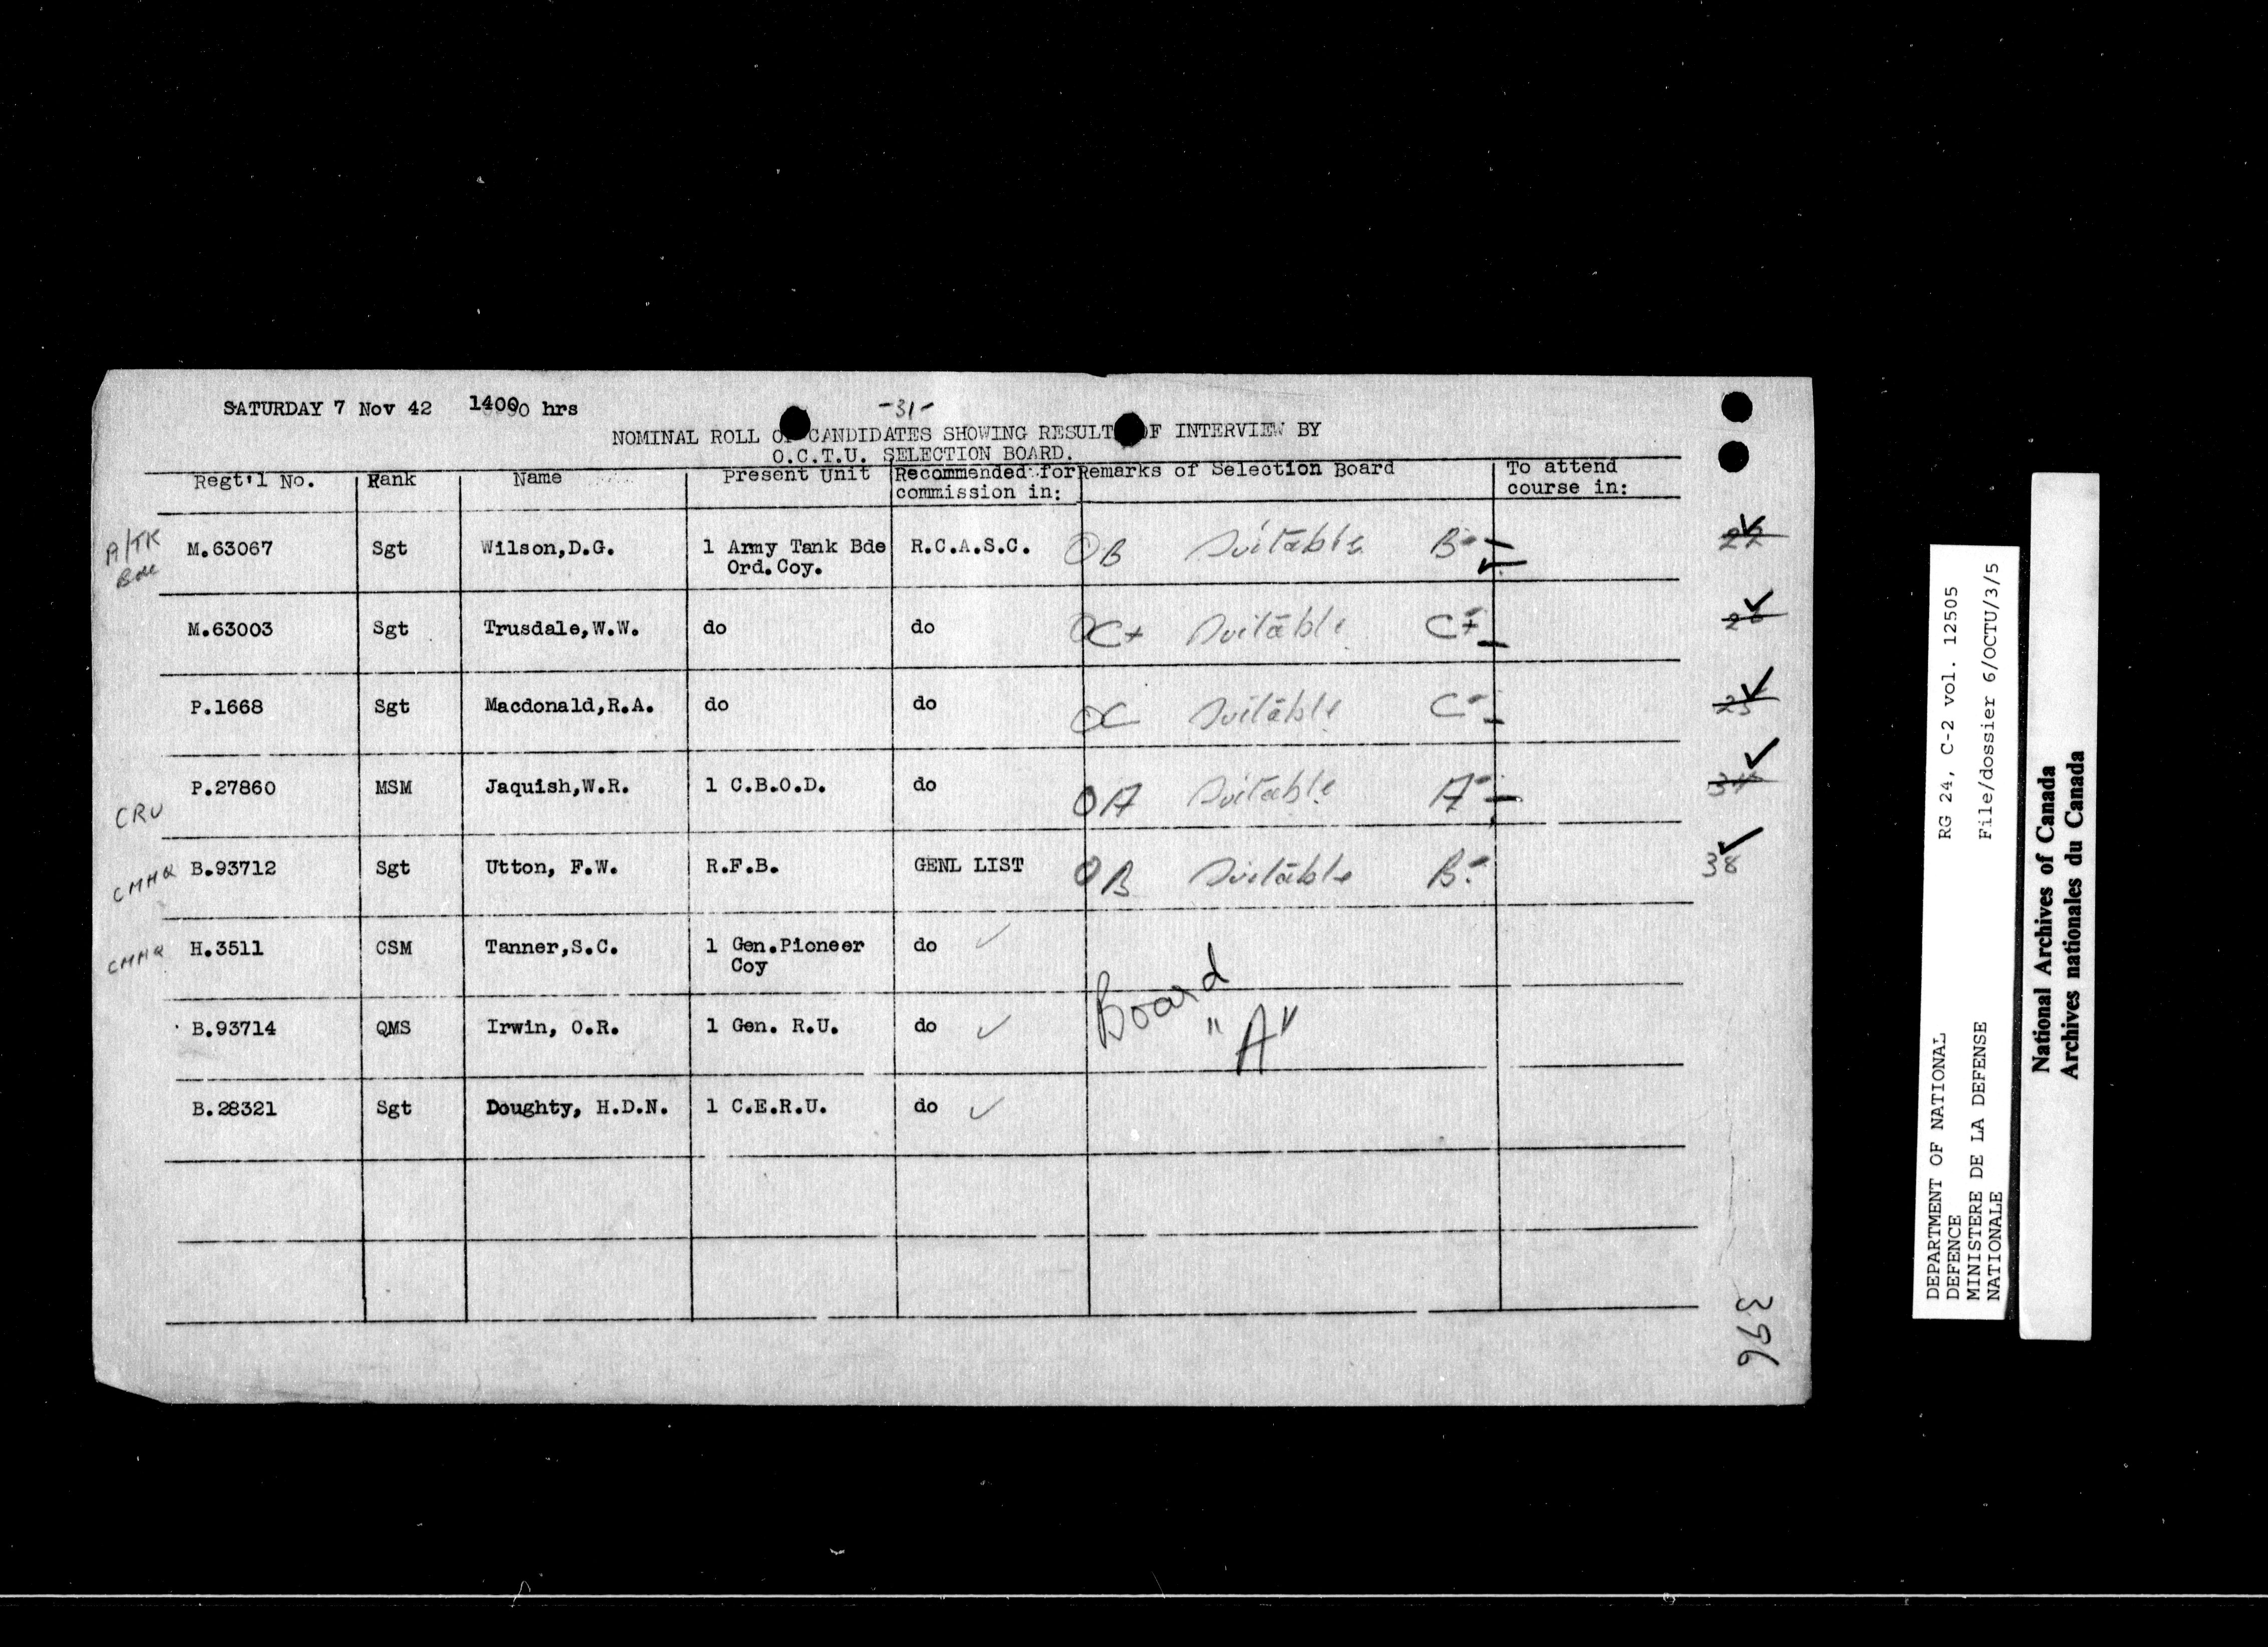 SATURDAY 7 Nov 42 1400 hrs
-31-
NOMINAL ROLL OF CANDIDATES SHOWING RESULT OF INTERVIEW BY
O.C.T.U. SELECTION BOARD.
Regt'l No. Rank Name Present Unit Recommended for commission in: Remarks of Selection Board To attend course in:
A/TK Bde M.63067 Sgt Wilson,D.G. 1 Army Tank Bde R.C.A.S.C. OB Suitable B
Ord.Coy.
M.63003 Sgt Trusdale,W.W. do do OC+ Suitable C+
P.1668 Sgt Macdonald,R.A. do do OC Suitable C
CRU P.27860 MSM Jaquish,W.R. 1 C.B.O.D. do OA Suitable A
CMHQ B.93712 Sgt Utton, F.W. R.F.B. GENL LIST OB Suitable B 38
CMHQ H.3511 CSM Tanner,S.C. 1 Gen.Pioneer do
Coy
Board "A"
B.93714 QMS Irwin, O.R. 1 Gen. R.U. do
B.28321 Sgt Doughty, H.D.N. 1 C.E.R.U. do
396
DEPARTMENT OF NATIONAL DEFENCE
MINISTERE DE LA DEFENSE NATIONALE
RG 24, C-2 vol. 12505
File/dossier 6/OCTU/3/5
National Archives of Canada
Archives nationales du Canada